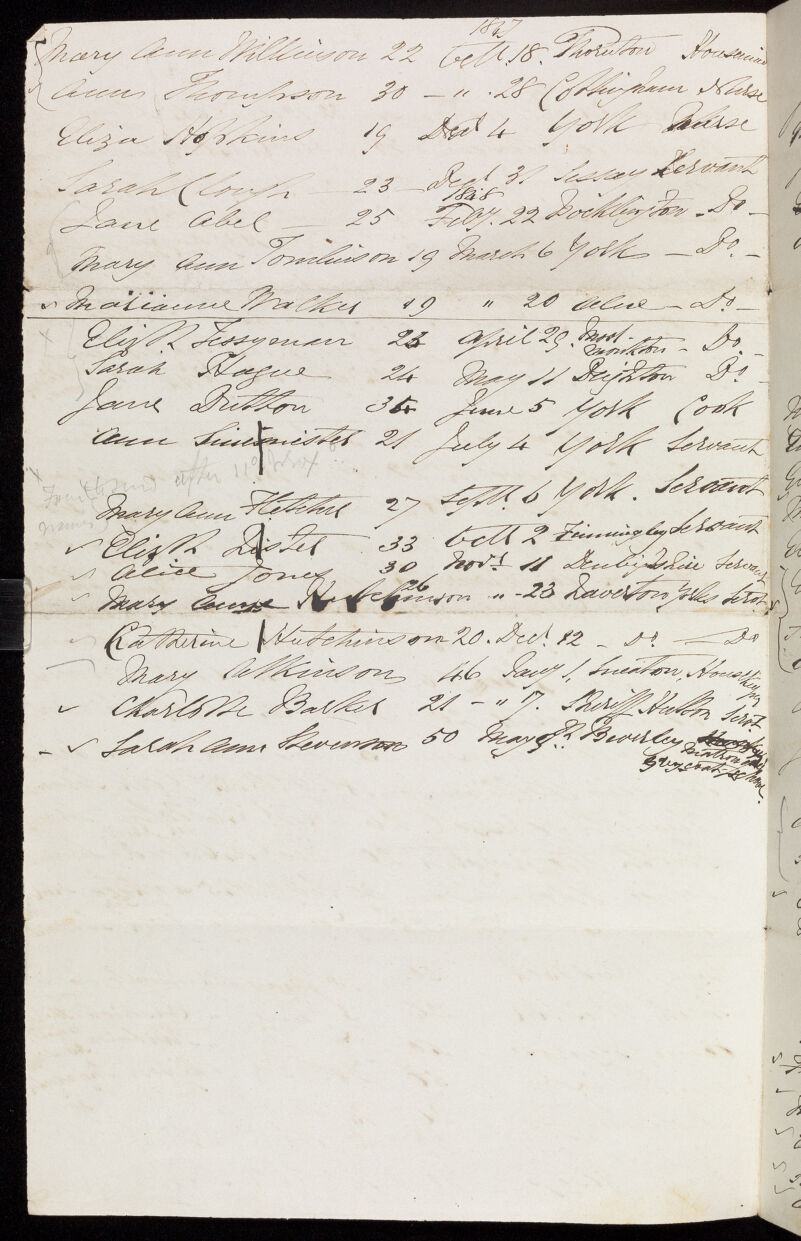 1837
Mary Ann Wilkinson 22 Octr 18. Thornton Housemaid
Ann Thompson 30 — " . 28 Cottingham Nurse
Eliza Hopkins 19 Decr 4 York Nurse
Sarah Clough — 23 — Decr 31 Sessay Servant
1838
Jane Abel — 25 Feby. 22 Pocklington — Do —
Mary Ann Tomlinson 19 March 6 York — Do. —
Marianne Walker 19 " 20 Alne — Do —
Elizth Tessyman 26 April 29. Moor-
monkton — Do. —
Sarah Hague 24 May 11 Deighton Do —
Jane Dutton 35 June 5 York Cook
Ann 21 July 4 York Servant
after 11
names
Mary Ann Fletcher 27 Septr. 6 York . Servant
Elizth Lister 33 Octr 2 Finningley Servant
Alice Jones 30 Novr 11 Denbighshire Servant
Mary Anne Hutchinson 26 " - 23 Yorks Servt
Catherine Hutchinson 20. Decr. 12 — Do — Do
Mary Atkinson 46 Jany. 1. Sneaton. Housekeeper
Charlotte Barker 21 — " 7. Sheriff Hutton Servt.
Sarah Ann Stevenson 50 May Beverley
Matron of
Grey coat school.